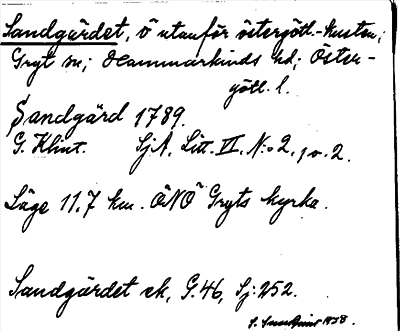 Sandgärdet, ö utanför östergötl.-kusten;
Gryt sn; Hammarkinds hd; Öster-
götl. l.
Sandgärd 1789.
G. Klint. SjA. Litt. VI. N:o 2, 1 o. 2.
Läge 11,7 km. ÖNÖ Gryts kyrka.
Sandgärdet ek, G.46, Sj:252.
1938.